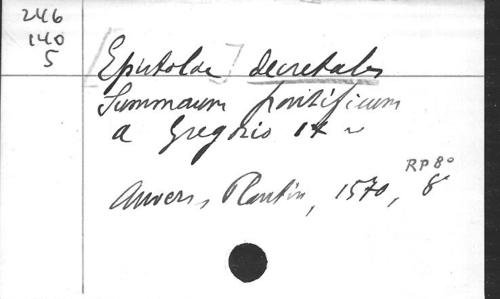 246
140
5
[Epistolae] decretales
Summorum pontificum
a Gregorio IX ~
Anvers, Plantin, 1570, 8°
RP 8°